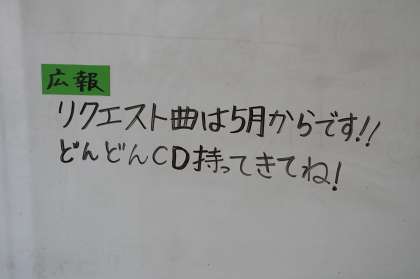 広報
リクエスト曲は5月からです!!
どんどんCD持ってきてね!